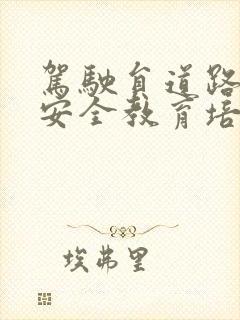 駕駛員道路
安全教育培
埃弗里